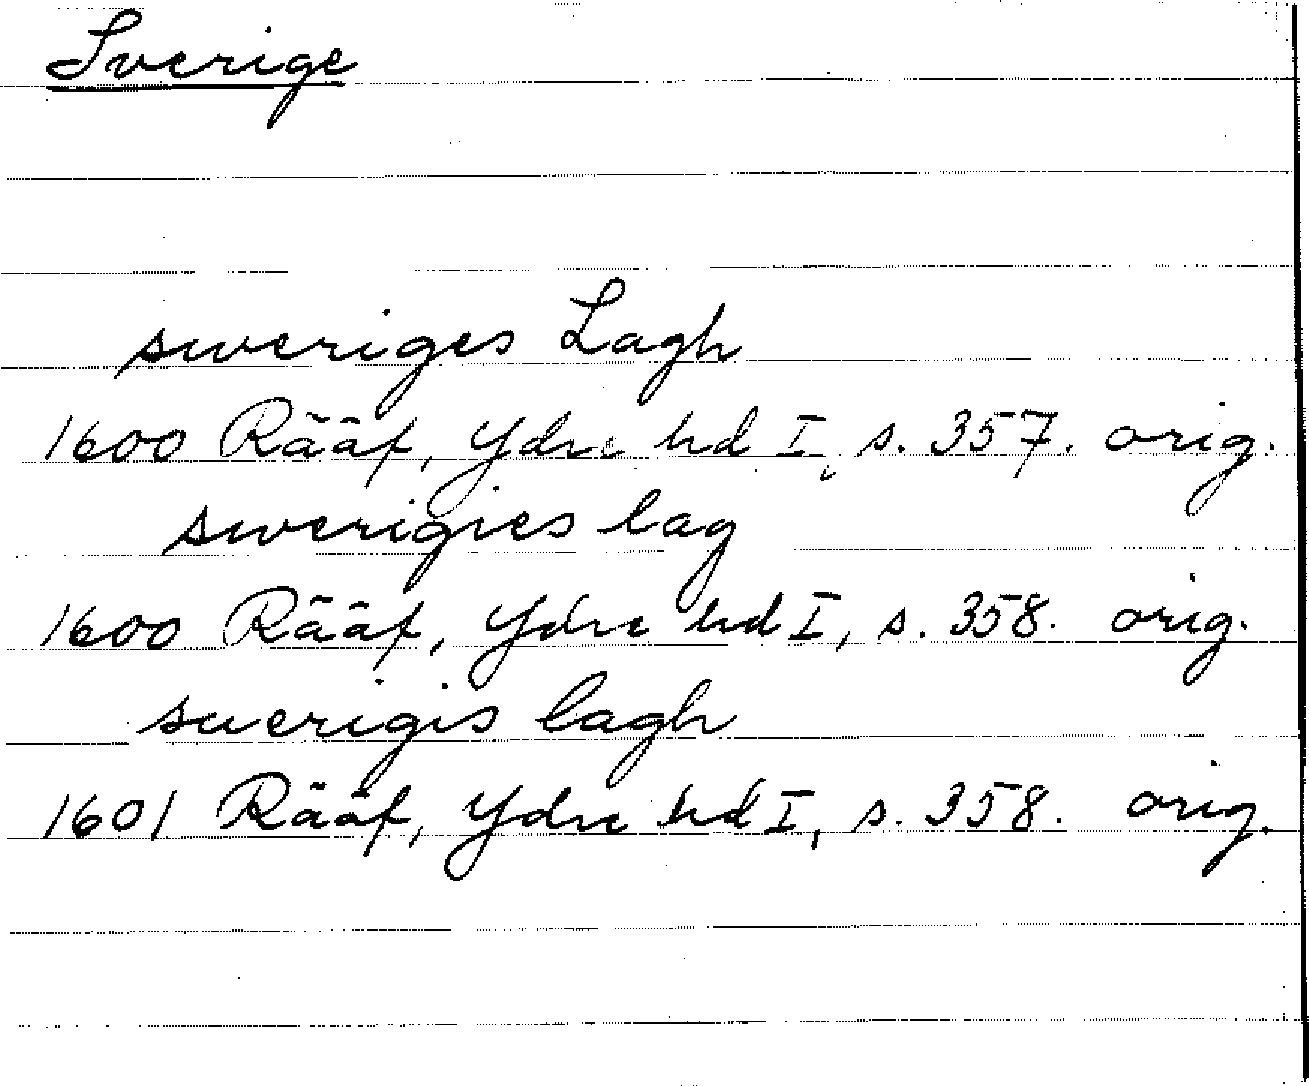 Sverige
sweriges Lagh
1600 Rääf, Ydre hd I, s. 357. orig.
swerigies lag
1600 Rääf, Ydre hd I, s. 358. orig.
suerigis lagh
1601 Rääf, Ydre hd I, s. 358. orig.